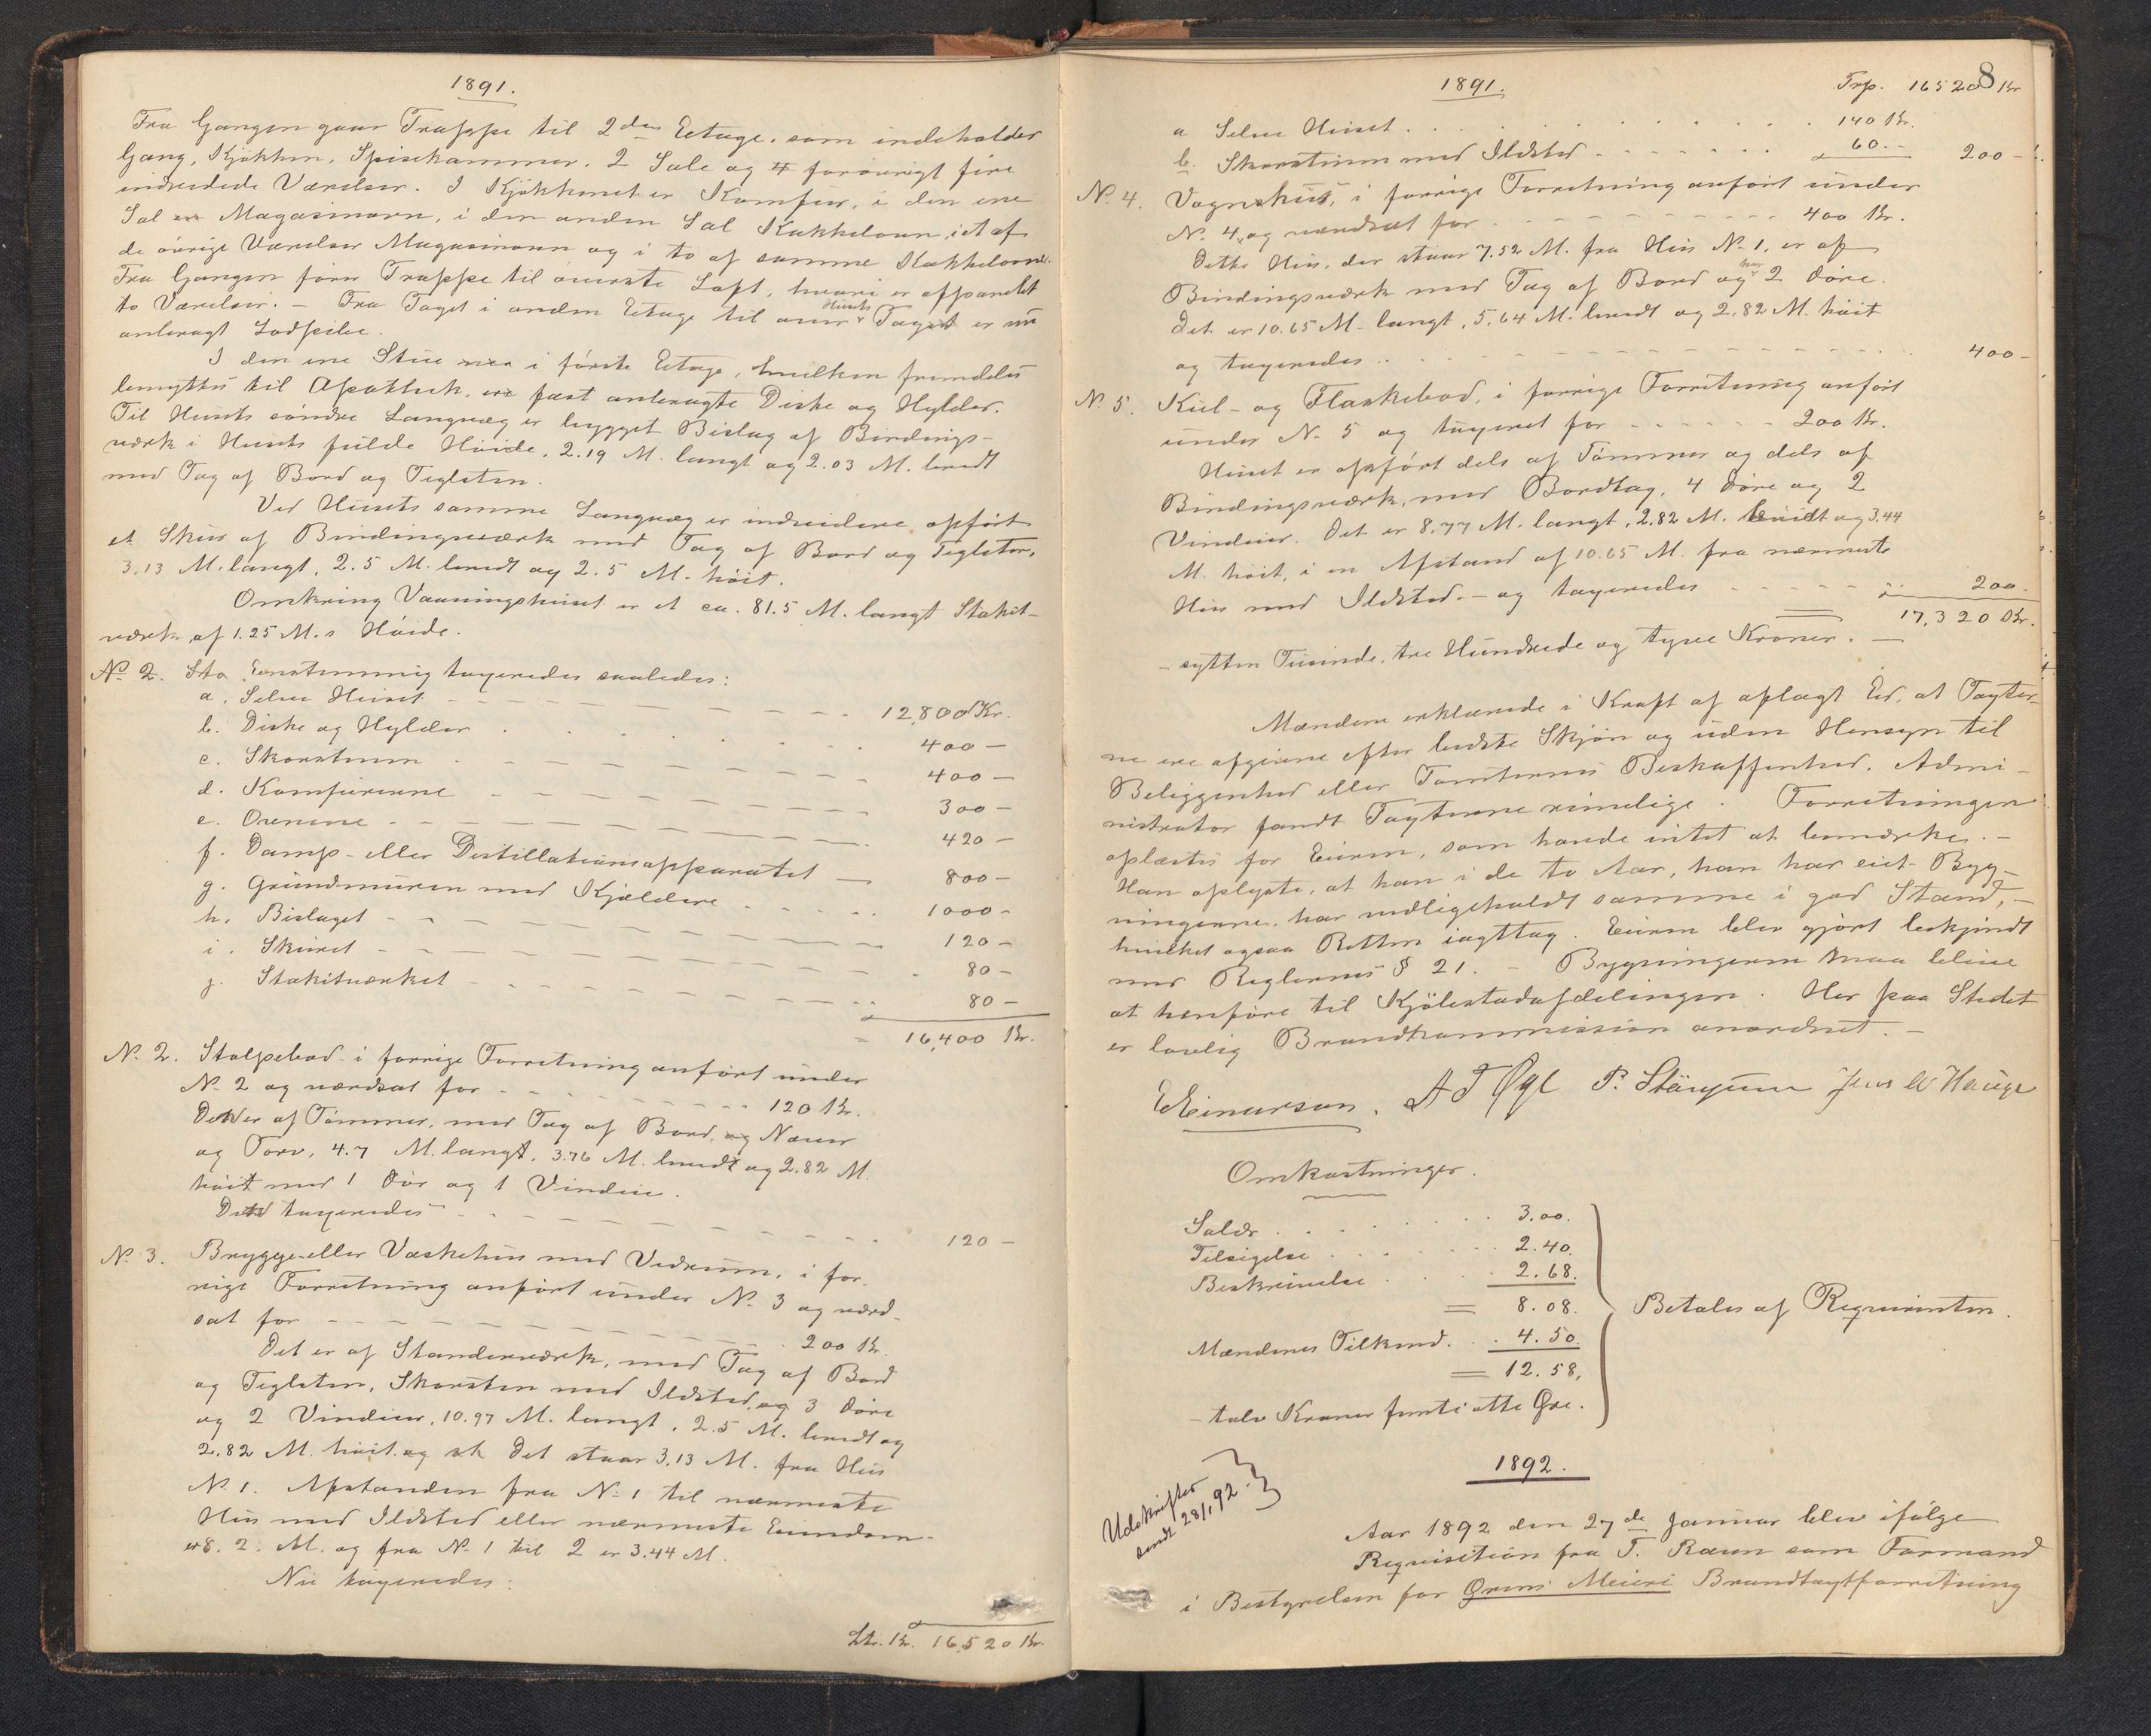 1891.
Fra Gangen gaar Trappe til 2den Etage, som indeholder
Gang, Kjøkken, Spisekammer, 2 Sale og 4 forøvrigt fire
indredede Værelser. I Kjøkkenet er Komfur, i den ene
Sal er Magasinovn, i den anden Sal Kakkelovn, i et af
de øvrige Værelser Magasinovn og i to af samme Kakkelovne.
Fra Gangen fører Trappe til øverste Loft, hvori er afpanelet
to Værelser. – Fra Taget i anden Etage til over Husets Taget er nu
anbragt Lodpibe.
I den ene Stue i første Etage, hvilken fremdeles
benyttes til Apothek, ere fast anbragte Diske og Hylder.
Til Husets søndre Langvæg er bygget Bislag af Bindings-
værk i Husets fulde Høide, 2.19 M. langt og 2.03 M. bredt
med Tag af Bord og Teglsten.
Ved Husets samme Langvæg er indvidere opført
et Skur af Bindingsværk med Tag af Bord og Teglsten,
3.13 M. langt, 2.5 M. bredt og 2.5 M. høit.
Omkring Vaaningshuset er et ca. 81.5 M. langt Stakit-
værk af 1.25 M.s Høide.
No. 2. Sta Eenstemmig taxeredes saaledes:
a. Selve Huset 12,800 Kr.
b. Diske og Hylder 400 –
c. Skorstenen 400 –
d. Komfurerne 300 –
e. Ovnene 420 –
f. Damp- eller Destillationsapparatet 800 –
g. Grundmuren med Kjældere 1000 –
h. Bislaget 120 –
i. Skuret 80 –
j. Stakitværket 80 –
= 16,400 Kr.
No. 2. Stolpebod i forrige Forretning anført under
No. 2 og værdsat for 120 Kr.
Den er af Tømmer, med Tag af Bord, og Næver
og Torv, 4.7 M. langt, 3.76 M. bredt og 2.82 M.
høit med 1 Dør og 1 Vindue.
Den taxeredes 120 –
No. 3. Brygge- eller Vaskehus med Vedrum, i for-
rige Forretning anført under No. 3 og værd-
sat for 200 Kr.
Det er af Standerværk, med Tag af Bord
og Teglsten, Skorsten med Ildsted, og 3 Døre
og 2 Vinduer, 10.97 M. langt, 2.5 M. bredt og
2.82 M. høit og Det staar 3.13 M. fra Hus
No. 1. Afstanden fra No. 1 til nærmeste
Hus med Ildsted eller nærmeste Eiendom
er 8.2. M. og fra No. 1 til 2 er 3.44 M.
Nu taxeredes:
Ltr. Kr. 16,520 Kr.
1891. Trp. 16520 Kr 8
a Selve Huset 140 Kr.
b. Skorstenen med Ildsted 60.– 200 –
No. 4. Vognskur, i forrige Forretning anført under
No. 4, og værdsat for 400 Kr.
Dette Hus, der staar 7.52 M. fra Hus No. 1, er af
Bindingsværk med Tag af Bord og har 2 Døre.
Det er 10.65 M. langt, 5.64 M. bredt og 2.82 M. høit
og taxeredes 400 –
No. 5. Kul- og Flaskebod, i forrige Forretning anført
under No. 5 og taxeret for 200 Kr.
Huset er opført dels af Tømmer og dels af
Bindingsværk, med Bordtag, 4 Døre og 2
Vinduer. Det er 8.77 M. langt, 2.82 M. bredt og 3.44
M. høit, i en Afstand af 10.65 M. fra nærmeste
Hus med Ildsted. – og taxeredes 200.
17,320 Kr.
– sytten Tusinde, tre Hundrede og tyve Kroner. –
Mændene erklærede i Kraft af aflagt Eed, at Taxter-
ne ere afgivne efter bedste Skjøn og uden Hensyn til
Beliggenhed eller Tomternes Beskaffenhed. Admi-
nistrator fandt Taxterne rimelige. Forretningen
oplæstes for Eieren, som havde intet at bemærke. –
Han oplyste, at han i de to Aar, han har eiet Byg-
ningerne, har vedligeholdt samme i god Stand, –
hvilket ogsaa Retten iagttog. Eieren blev gjort bekjendt
med Reglernes § 21. – Bygningerne maa blive
at henføre til Kjøbstadafdelingen. Her paa Stedet
er lovlig Brandkommission anordnet. –
E Einarson. A T Øyl P. Støryum Jens W Hauge
Omkostninger.
Salær 3.00.
Tilsigelse 2.40.
Beskrivelse 2.68.
= 8.08.
Mændenes Tilkomst 4.50.
= 12.58,
– tolv Kroner femti otte Øre.
Betales af Requirenten.
1892.
Udskrifter
sendt 28/1 92.
Aar 1892 den 27de Januar blev ifølge
Requisition fra T. Ravn som Formand
i Bestyrelsen for Ørens Meieri Brandtaxtforretning